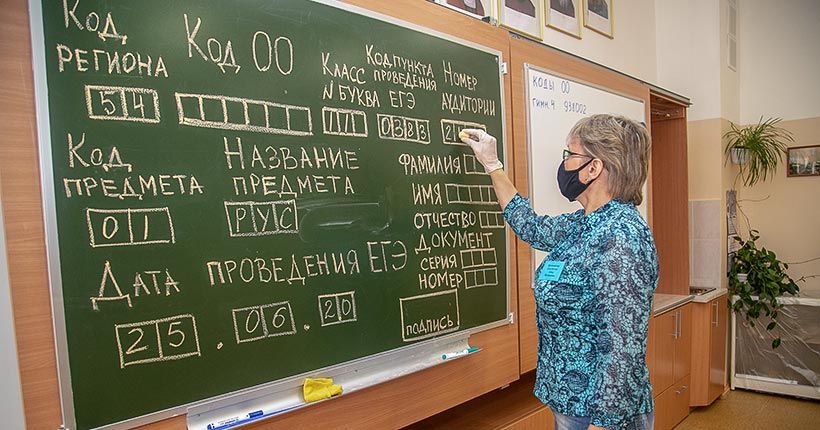 Код региона
54
Код ОО
Класс
N буква
Код пункта проведения ЕГЭ
0383
Номер аудитории
2
Код предмета
01
Название предмета
РУС
Фамилия
Имя
Отчество
Документ
серия
номер
Дата проведения ЕГЭ
25.06.20
подпись
КОДЫ ОО
гимн. 4 938002